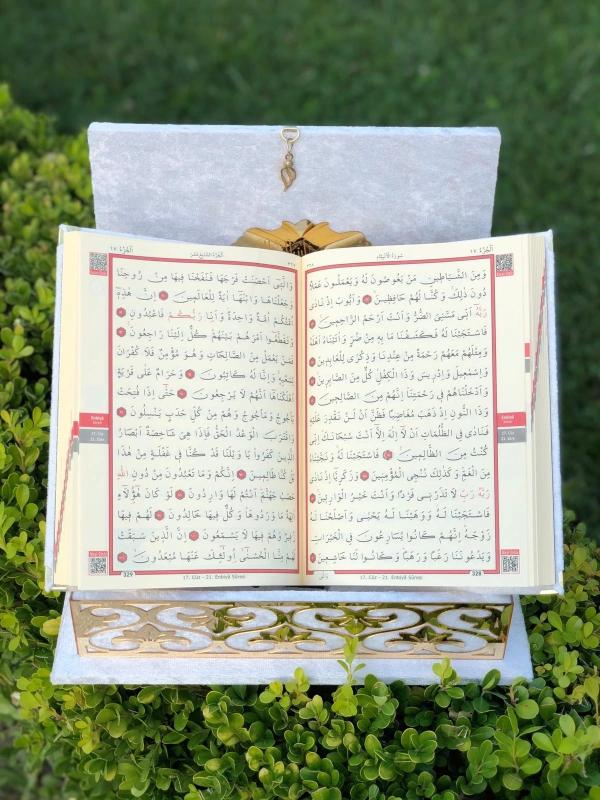 الجزء ١٧
سورة الأنبياء
وَمِنَ الشَّيَاطِينِ مَنْ يَغُوصُونَ لَهُ وَيَعْمَلُونَ عَمَلًا
دُونَ ذٰلِكَ وَكُنَّا لَهُمْ حَافِظِينَ وَاَيُّوبَ اِذْ نَادٰى
رَبَّهُ اَنِّي مَسَّنِيَ الضُّرُّ وَاَنْتَ اَرْحَمُ الرَّاحِمِينَ
فَاسْتَجَبْنَا لَهُ فَكَشَفْنَا مَا بِهِ مِنْ ضُرٍّ وَاٰتَيْنَاهُ اَهْلَهُ
وَمِثْلَهُمْ مَعَهُمْ رَحْمَةً مِنْ عِنْدِنَا وَذِكْرٰى لِلْعَابِدِينَ
وَاِسْمٰعِيلَ وَاِدْرِيسَ وَذَا الْكِفْلِ كُلٌّ مِنَ الصَّابِرِينَ
وَاَدْخَلْنَاهُمْ فِي رَحْمَتِنَا اِنَّهُمْ مِنَ الصَّالِحِينَ
وَذَا النُّونِ اِذْ ذَهَبَ مُغَاضِبًا فَظَنَّ اَنْ لَنْ نَقْدِرَ عَلَيْهِ
فَنَادٰى فِي الظُّلُمَاتِ اَنْ لَا اِلٰهَ اِلَّا اَنْتَ سُبْحَانَكَ اِنِّي
كُنْتُ مِنَ الظَّالِمِينَ فَاسْتَجَبْنَا لَهُ وَنَجَّيْنَاهُ
مِنَ الْغَمِّ وَكَذٰلِكَ نُنْجِي الْمُؤْمِنِينَ وَزَكَرِيَّا اِذْ نَادٰى
رَبَّهُ رَبِّ لَا تَذَرْنِي فَرْدًا وَاَنْتَ خَيْرُ الْوَارِثِينَ
فَاسْتَجَبْنَا لَهُ وَوَهَبْنَا لَهُ يَحْيٰى وَاَصْلَحْنَا لَهُ
زَوْجَهُ اِنَّهُمْ كَانُوا يُسَارِعُونَ فِي الْخَيْرَاتِ
وَيَدْعُونَنَا رَغَبًا وَرَهَبًا وَكَانُوا لَنَا خَاشِعِينَ
17. Cüz – 21. Enbiyâ Sûresi
328
Enbiyâ
الجزء السابع عشر
الجزء ١٧
وَالَّتِي اَحْصَنَتْ فَرْجَهَا فَنَفَخْنَا فِيهَا مِنْ رُوحِنَا
وَجَعَلْنَاهَا وَابْنَهَا اٰيَةً لِلْعَالَمِينَ اِنَّ هٰذِهِ
اُمَّتُكُمْ اُمَّةً وَاحِدَةً وَاَنَا رَبُّكُمْ فَاعْبُدُونِ
وَتَقَطَّعُوا اَمْرَهُمْ بَيْنَهُمْ كُلٌّ اِلَيْنَا رَاجِعُونَ
فَمَنْ يَعْمَلْ مِنَ الصَّالِحَاتِ وَهُوَ مُؤْمِنٌ فَلَا كُفْرَانَ
لِسَعْيِهِ وَاِنَّا لَهُ كَاتِبُونَ وَحَرَامٌ عَلٰى قَرْيَةٍ
اَهْلَكْنَاهَا اَنَّهُمْ لَا يَرْجِعُونَ حَتّٰى اِذَا فُتِحَتْ
يَأْجُوجُ وَمَأْجُوجُ وَهُمْ مِنْ كُلِّ حَدَبٍ يَنْسِلُونَ
وَاقْتَرَبَ الْوَعْدُ الْحَقُّ فَاِذَا هِيَ شَاخِصَةٌ اَبْصَارُ
الَّذِينَ كَفَرُوا يَا وَيْلَنَا قَدْ كُنَّا فِي غَفْلَةٍ مِنْ هٰذَا
بَلْ كُنَّا ظَالِمِينَ اِنَّكُمْ وَمَا تَعْبُدُونَ مِنْ دُونِ اللّٰهِ
حَصَبُ جَهَنَّمَ اَنْتُمْ لَهَا وَارِدُونَ لَوْ كَانَ هٰؤُلَاءِ
اٰلِهَةً مَا وَرَدُوهَا وَكُلٌّ فِيهَا خَالِدُونَ لَهُمْ فِيهَا
زَفِيرٌ وَهُمْ فِيهَا لَا يَسْمَعُونَ اِنَّ الَّذِينَ سَبَقَتْ
لَهُمْ مِنَّا الْحُسْنٰى اُولٰئِكَ عَنْهَا مُبْعَدُونَ
329
17. Cüz – 21. Enbiyâ Sûresi
Enbiyâ
17. Cüz
21. Sûre